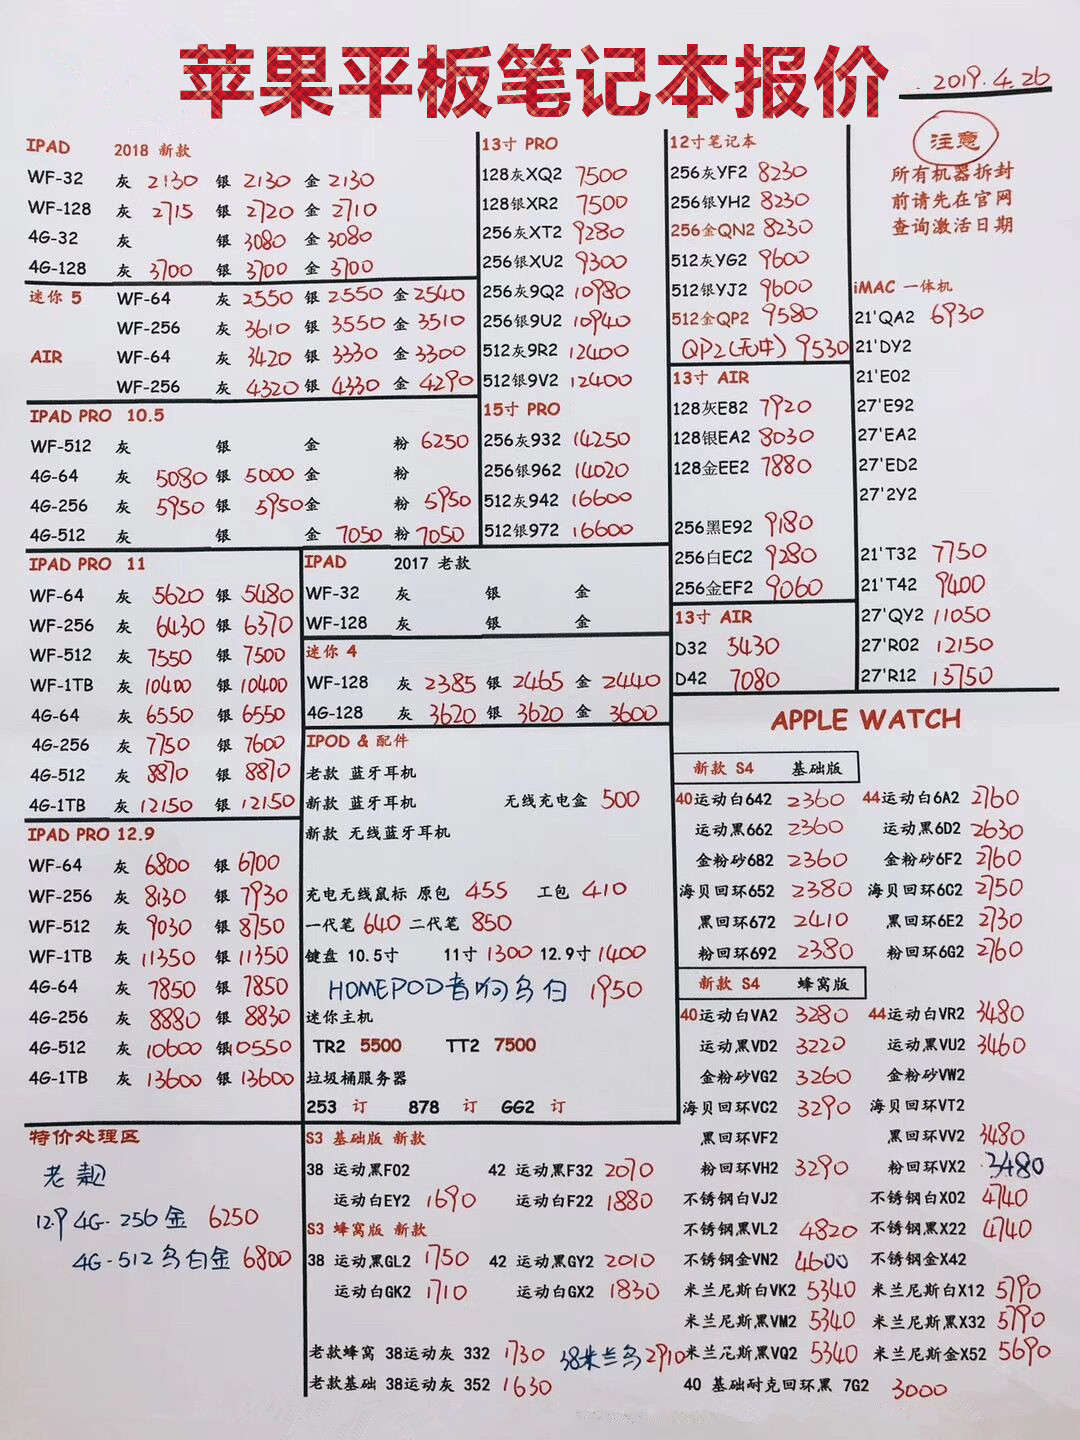 苹果平板笔记本报价
2019.4.26
IPAD 2018 新款
WF-32 灰 2130 银 2130 金 2130
WF-128 灰 2715 银 2720 金 2710
4G-32 灰 银 3080 金 3080
4G-128 灰 3700 银 3700 金 3700
迷你 5 WF-64 灰 2550 银 2550 金 2540
WF-256 灰 3610 银 3550 金 3510
AIR WF-64 灰 3420 银 3330 金 3300
WF-256 灰 4320 银 4330 金 4290
IPAD PRO 10.5
WF-512 灰 银 金 粉 6250
4G-64 灰 5080 银 5000 金 粉
4G-256 灰 5950 银 5950 金 粉 5950
4G-512 灰 银 金 7050 粉 7050
IPAD PRO 11
WF-64 灰 5620 银 5480
WF-256 灰 6430 银 6370
WF-512 灰 7550 银 7500
WF-1TB 灰 10400 银 10400
4G-64 灰 6550 银 6550
4G-256 灰 7750 银 7600
4G-512 灰 8870 银 8870
4G-1TB 灰 12150 银 12150
IPAD PRO 12.9
WF-64 灰 6800 银 6700
WF-256 灰 8130 银 7930
WF-512 灰 9030 银 8750
WF-1TB 灰 11350 银 11350
4G-64 灰 7850 银 7850
4G-256 灰 8880 银 8830
4G-512 灰 10600 银 10550
4G-1TB 灰 13600 银 13600
特价处理区
老款
12.9 4G-256 金 6250
4G-512 乌白金 6800
13寸 PRO
128灰XQ2 7500
128银XR2 7500
256灰XT2 9280
256银XU2 9300
256灰9Q2 10980
256银9U2 10940
512灰9R2 12400
512银9V2 12400
15寸 PRO
256灰932 14250
256银962 14020
512灰942 16600
512银972 16600
IPAD 2017 老款
WF-32 灰 银 金
WF-128 灰 银 金
迷你 4
WF-128 灰 2385 银 2465 金 2440
4G-128 灰 3620 银 3620 金 3600
IPOD & 配件
老款 蓝牙耳机
新款 蓝牙耳机 无线充电盒 500
新款 无线蓝牙耳机
充电无线鼠标 原包 455 工包 410
一代笔 640 二代笔 850
键盘 10.5寸 11寸 1300 12.9寸 1400
HOMEPOD音响乌白 1950
迷你主机
TR2 5500 TT2 7500
垃圾桶服务器
253 订 878 订 GG2 订
S3 基础版 新款
38 运动黑F02 42 运动黑F32 2070
运动白EY2 1690 运动白F22 1880
S3 蜂窝版 新款
38 运动黑GL2 1750 42 运动黑GY2 2010
运动白GK2 1710 运动白GX2 1830
老款蜂窝 38运动灰 332 1730 38米兰乌 2910
老款基础 38运动灰 352 1630
12寸笔记本
256灰YF2 8230
256银YH2 8230
256金QN2 8230
512灰YG2 9600
512银YJ2 9600
512金QP2 9580
QP2(无卡) 9530
13寸 AIR
128灰E82 7920
128银EA2 8030
128金EE2 7880
256黑E92 9180
256白EC2 9280
256金EF2 9060
13寸 AIR
D32 5430
D42 7080
注意
所有机器拆封
前请先在官网
查询激活日期
iMAC 一体机
21'QA2 6930
21'DY2
21'E02
27'E92
27'EA2
27'ED2
27'2Y2
21'T32 7750
21'T42 9400
27'QY2 11050
27'R02 12150
27'R12 13750
APPLE WATCH
新款 S4 基础版
40运动白642 2360 44运动白6A2 2760
运动黑662 2360 运动黑6D2 2630
金粉砂682 2360 金粉砂6F2 2760
海贝回环652 2380 海贝回环6C2 2750
黑回环672 2410 黑回环6E2 2730
粉回环692 2380 粉回环6G2 2760
新款 S4 蜂窝版
40运动白VA2 3280 44运动白VR2 3480
运动黑VD2 3220 运动黑VU2 3460
金粉砂VG2 3260 金粉砂VW2
海贝回环VC2 3290 海贝回环VT2
黑回环VF2 黑回环VV2 3480
粉回环VH2 3290 粉回环VX2 3480
不锈钢白VJ2 不锈钢白X02 4740
不锈钢黑VL2 4820 不锈钢黑X22 4740
不锈钢金VN2 4600 不锈钢金X42
米兰尼斯白VK2 5340 米兰尼斯白X12 5790
米兰尼斯黑VM2 5340 米兰尼斯黑X32 5790
米兰尼斯黑VQ2 5340 米兰尼斯金X52 5690
40 基础耐克回环黑 7G2 3000